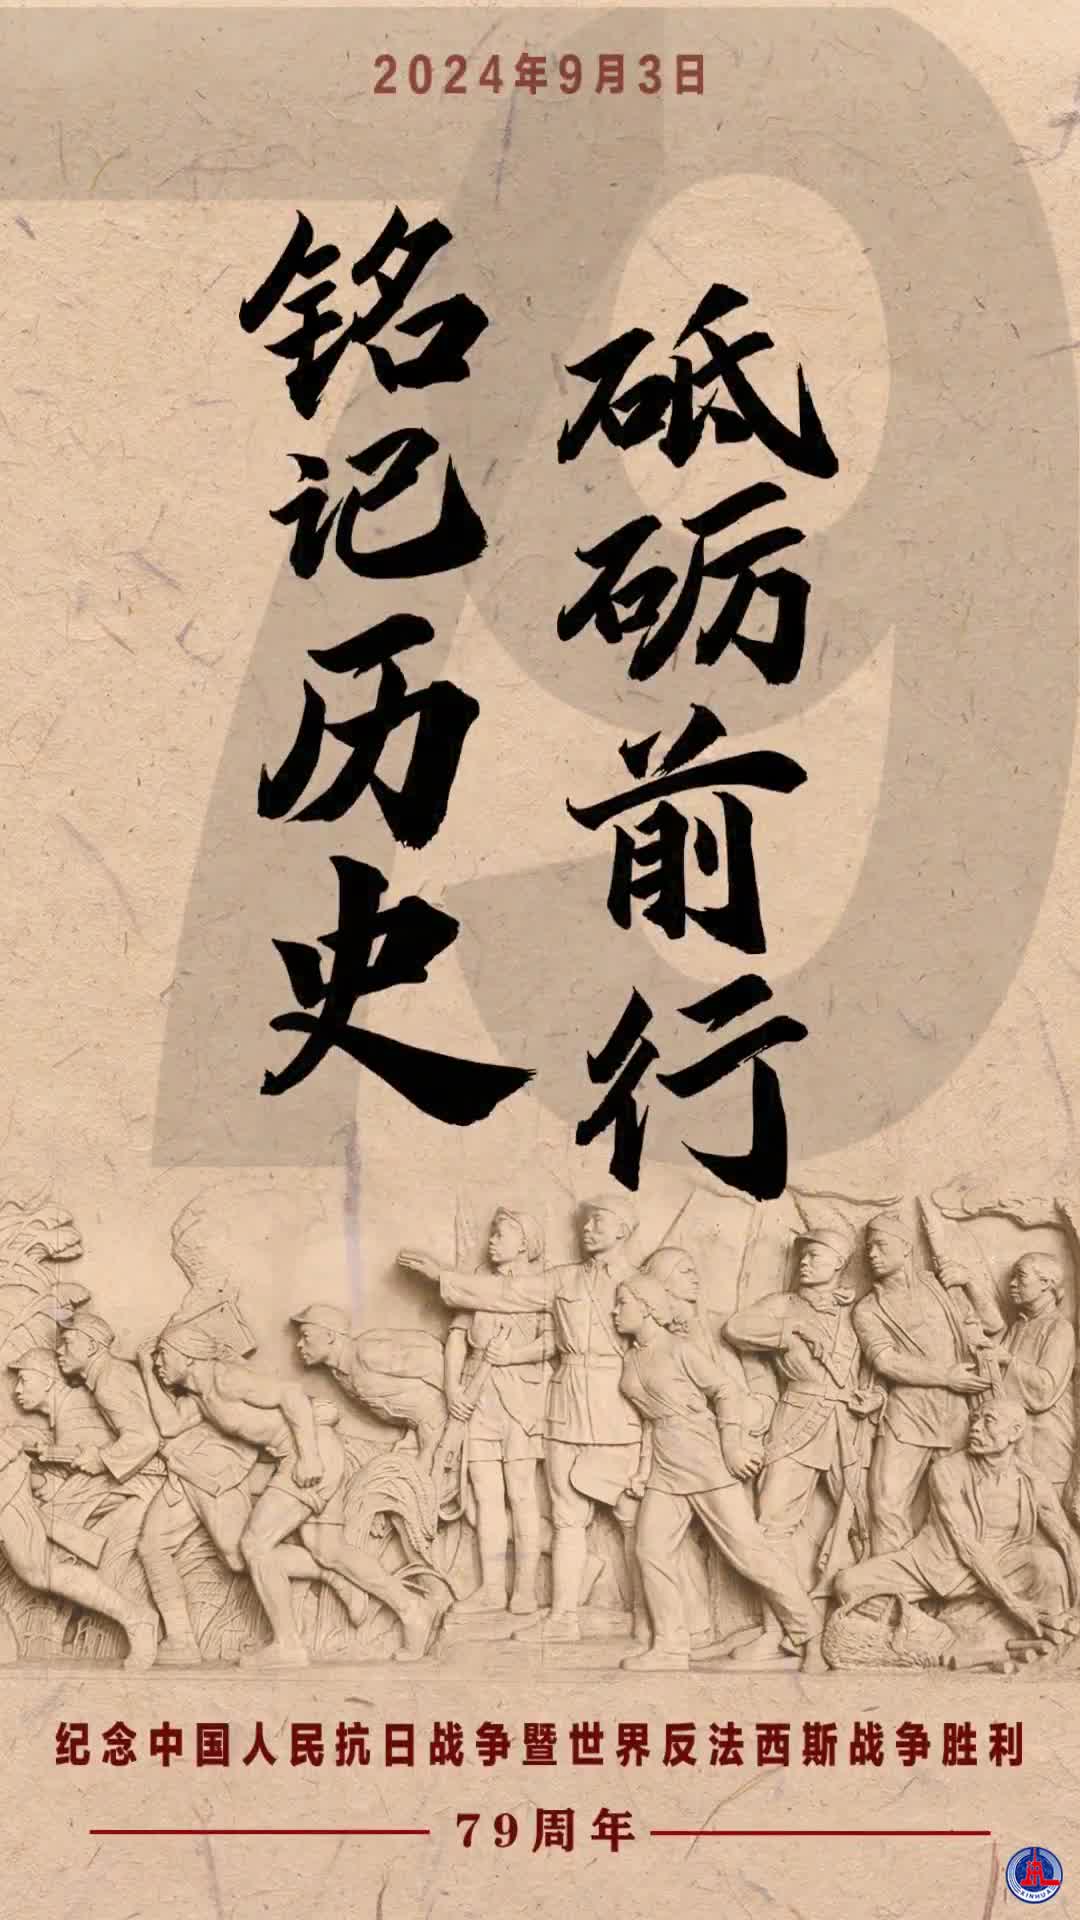 2024年9月3日
铭记历史
砥砺前行
纪念中国人民抗日战争暨世界反法西斯战争胜利
79周年
79
XINHUA